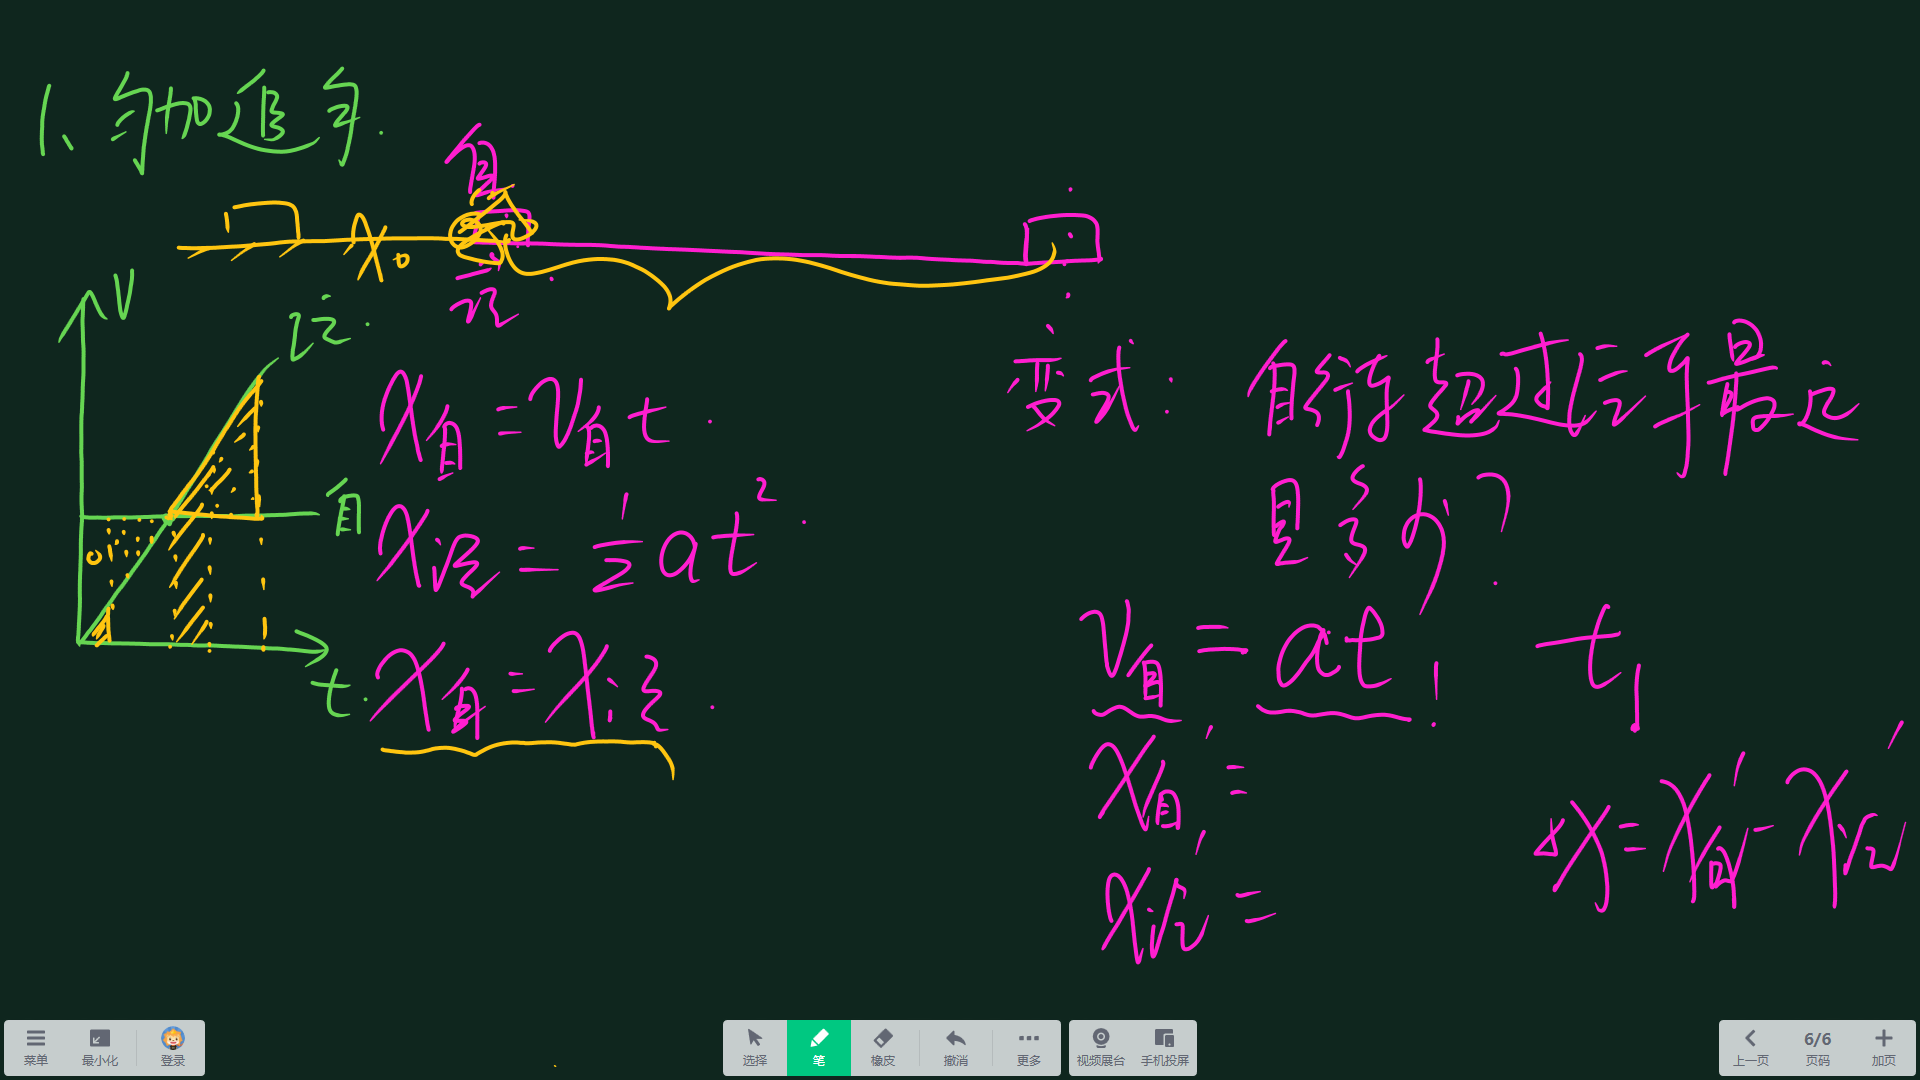 1、匀加追匀.
自
x₀
V
汽
x自=v自t
自
x汽=½at²
x自=x汽
t
变式:自行车超过汽车最远
是多少?
v自=at₁ t₁
x自'=
x汽'=
Δx=x自'-x汽'
菜单 最小化 登录 选择 笔 橡皮 撤消 更多 视频展台 手机投屏 上一页 6/6 页码 加页